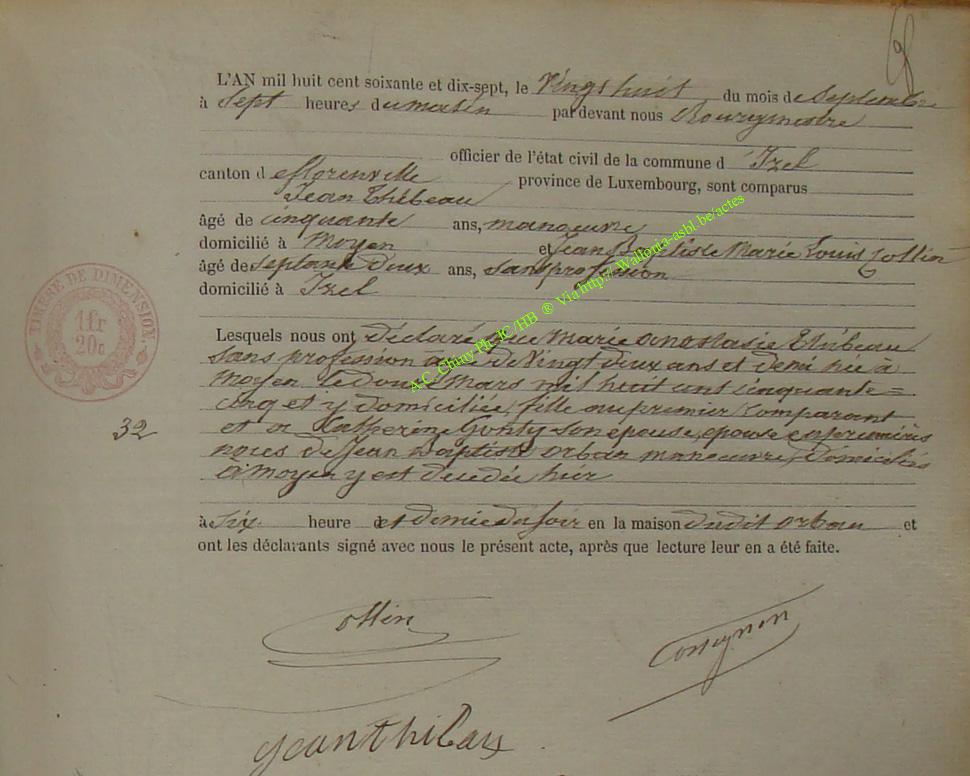 L'AN mil huit cent soixante et dix-sept, le Vingt huit du mois de Septembre
à Sept heures du matin par devant nous Bourgmestre
officier de l'état civil de la commune d' Izel
canton de florenville province de Luxembourg, sont comparus
Jean Thébeau
âgé de cinquante ans, manœuvre
domicilié à Moyen et Jean Baptiste Marie Louis Collin
âgé de Septante Deux ans, Sans profession
domicilié à Izel
Lesquels nous ont Déclaré que Marie anastasie Thébeau
Sans profession âgée de Vingt deux ans et demi née à
Moyen le douze Mars mil huit cent cinquante=
cinq et y domiciliée, fille au premier Comparant
et à Katherine Gonty Son épouse, épouse en premières
noces de Jean Baptiste Orban manœuvre, domicilié
à Moyen y est décédée hier
32
à Six heure et demie du soir en la maison dudit Orban et
ont les déclarants signé avec nous le présent acte, après que lecture leur en a été faite.
TIMBRE DE DIMENSION.
1 fr
20c
A.C. Chiny Ph. JC/HB ® Via http://Wallonia-asbl.be/actes
Collin
Cossignon
Jean Thibaux